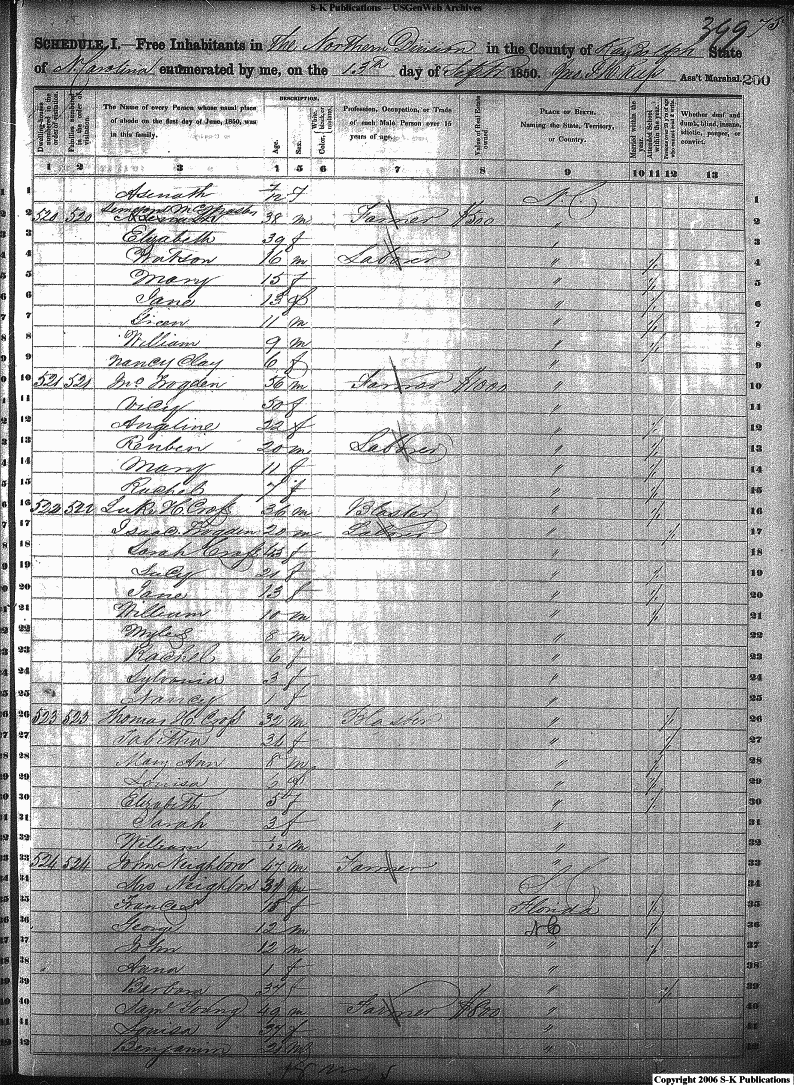 S-K Publications – USGenWeb Archives
399 75
SCHEDULE I.—Free Inhabitants in The Northern Division in the County of Randolph State
of N Carolina enumerated by me, on the 13th day of Sept 1850. Ass't Marshal. 200
Dwelling-houses numbered in the order of visitation.
Families numbered in the order of visitation.
The Name of every Person whose usual place of abode on the first day of June, 1850, was in this family.
DESCRIPTION.
Age.
Sex.
Color, White, black, or mulatto.
Profession, Occupation, or Trade of each Male Person over 15 years of age.
Value of Real Estate owned
PLACE OF BIRTH. Naming the State, Territory, or Country.
Married within the year.
Attended School within the year.
Persons over 20 y'rs of age who cannot read & write.
Whether deaf and dumb, blind, insane, idiotic, pauper, or convict.
1 2 3 4 5 6 7 8 9 10 11 12 13
1 Asenath /12 f N C 1
2 520 520 38 m Farmer $500 " 2
3 Elizabeth 39 f " 3
4 Watson 16 m Laborer " / 4
5 Mary 15 f " / 5
6 Jane 13 f " / 6
7 11 m " / 7
8 William 9 m " / 8
9 Nancy Clay 6 f " 9
10 521 521 56 m Farmer $1000 " 10
11 Vicy 50 f " 11
12 Angeline 22 f " / 12
13 Reuben 20 m Laborer " / 13
14 Mary 11 f " / 14
15 Rachel 7 f " / 15
16 522 522 Luke H Cross 36 m Blaster " / 16
17 Isaac 20 m Laborer " / 17
18 Sarah Cross f " 18
19 Lucy 21 f " / 19
20 Jane 13 f " / 20
21 William 10 m " / 21
22 Myles 8 m " 22
23 Rachel 6 f " 23
24 Sylvania 3 f " 24
25 Nancy 1 f " 25
26 523 523 Thomas H Cross 32 m Blaster " / 26
27 Tabitha f " / 27
28 Mary Ann 8 m " / 28
29 Louisa 6 f " / 29
30 Elizabeth 5 f " / 30
31 Sarah 3 f " 31
32 William /12 m " 32
33 524 524 John Neighbors 47 m Farmer " 33
34 Mrs Neighbors S C 34
35 Frances 15 f Florida / 35
36 George 12 m N C / 36
37 John 12 m " / 37
38 Anna 1 f " 38
39 Barbara f " / 39
40 Sam Young 49 m Farmer $800 " 40
41 Louisa 37 f " 41
42 Benjamin m " 42
Copyright 2006 S-K Publications